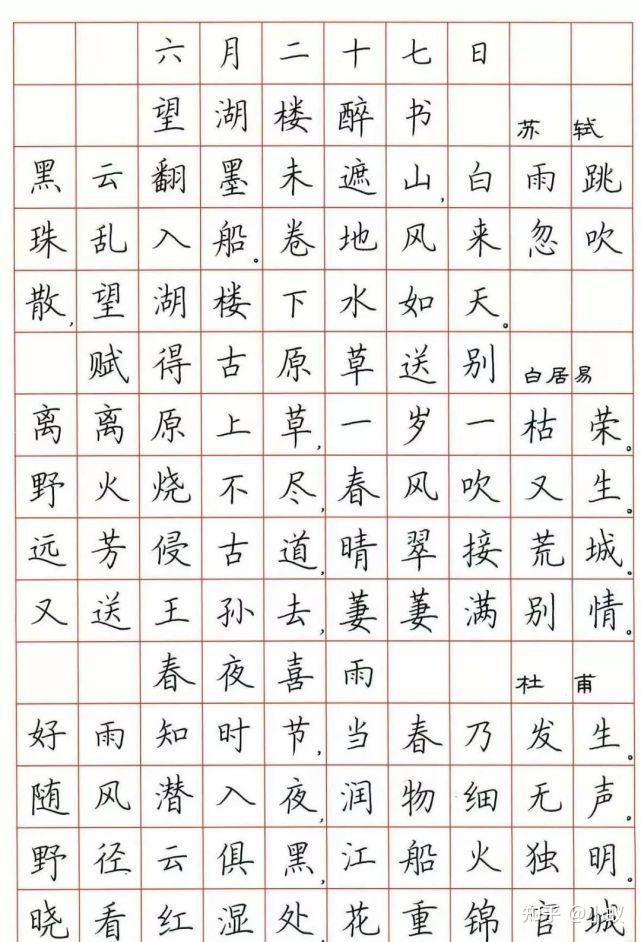 六月二十七日
望湖楼醉书 苏轼
黑云翻墨未遮山,白雨跳
珠乱入船。卷地风来忽吹
散,望湖楼下水如天。
赋得古原草送别 白居易
离离原上草,一岁一枯荣。
野火烧不尽,春风吹又生。
远芳侵古道,晴翠接荒城。
又送王孙去,萋萋满别情。
春夜喜雨 杜甫
好雨知时节,当春乃发生。
随风潜入夜,润物细无声。
野径云俱黑,江船火独明。
晓看红湿处,花重锦官城
知乎 @小蚁